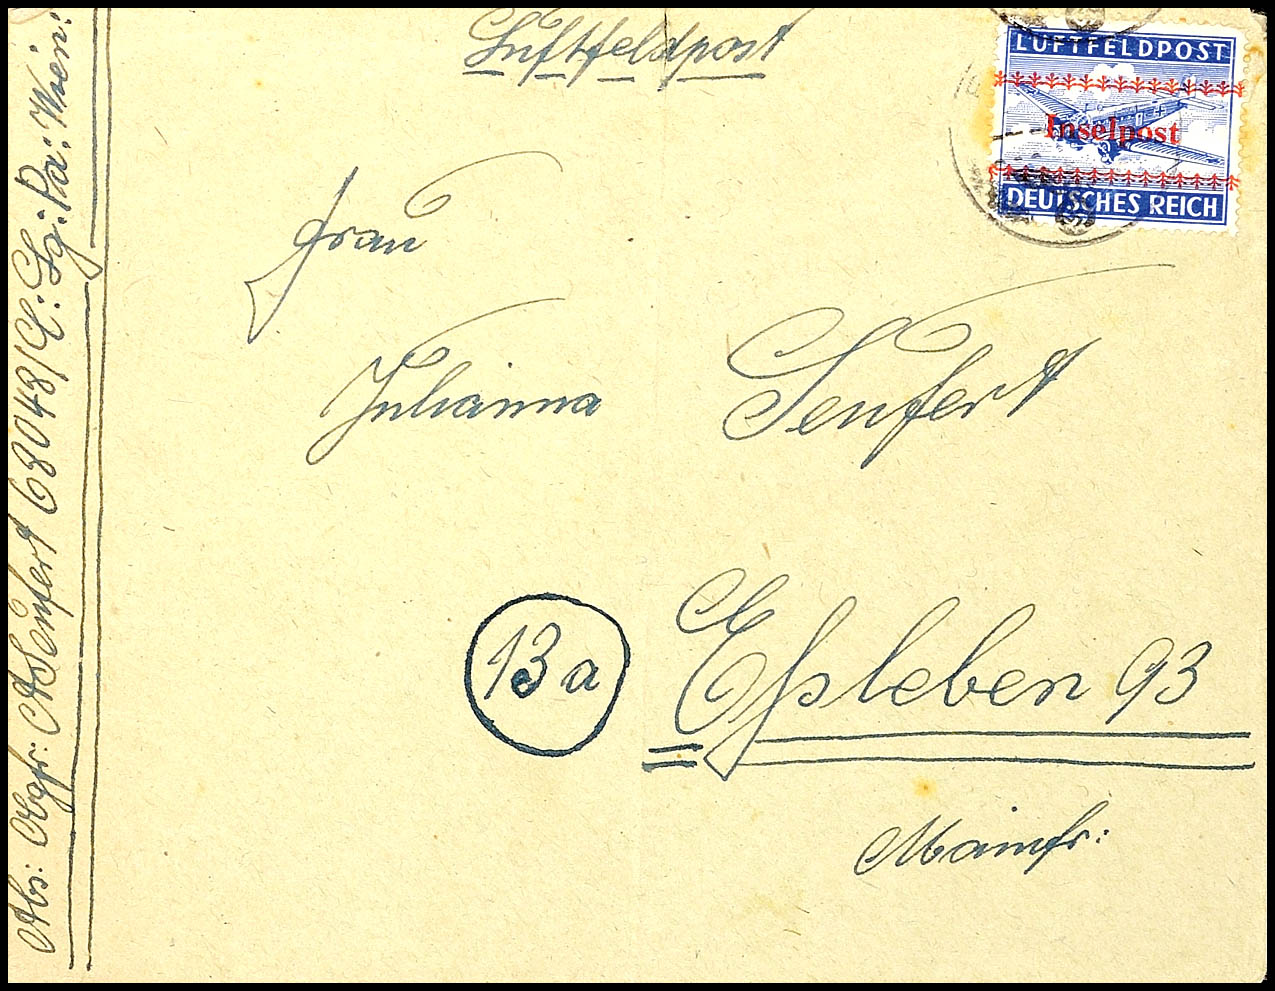 Luftfeldpost
LUFTFELDPOST
Inselpost
DEUTSCHES REICH
Frau
Julianna Seufert
13a Eßleben 93
Mainfr:
Abs: Obgfr: A Seufert 68048/C: Lg: Pa: Wien: